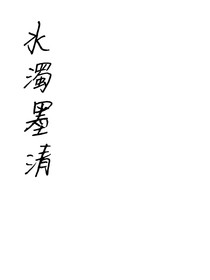 水濁墨清